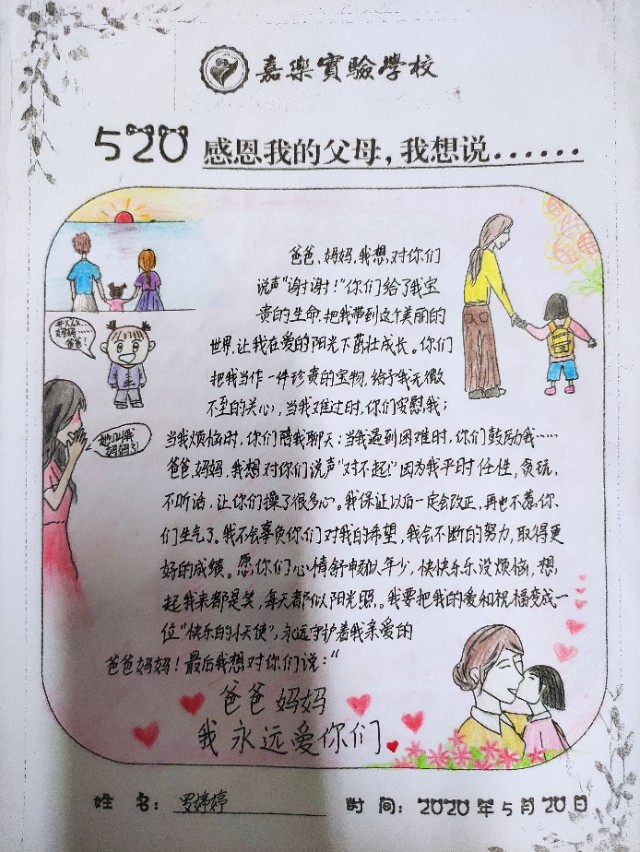 嘉樂實驗學校
520 感恩我的父母,我想说……
爸爸、妈妈,我想对你们
说声“谢谢!”你们给了我宝
贵的生命,把我带到这个美丽的
世界,让我在爱的阳光下茁壮成长。你们
把我当作一件珍贵的宝物,给予我无微
不至的关心,当我难过时,你们安慰我;
当我烦恼时,你们陪我聊天;当我遇到困难时,你们鼓励我……
爸爸,妈妈,我想对你们说声“对不起!”因为我平时任性,贪玩,
不听话,让你们操了很多心。我保证以后一定会改正,再也不惹你
们生气了。我不会辜负你们对我的希望,我会不断的努力,取得更
好的成绩。愿你们心情舒畅似年少,快快乐乐没烦恼,想
起我来都是笑,每天都似阳光照。我要把我的爱和祝福变成一
位“快乐的小天使”,永远守护着我亲爱的
爸爸妈妈!最后我想对你们说:“
爸爸妈妈
我永远爱你们
妈妈……
爸爸!
她叫我
妈妈了
姓 名: 罗婷婷
时 间: 2020年5月20日